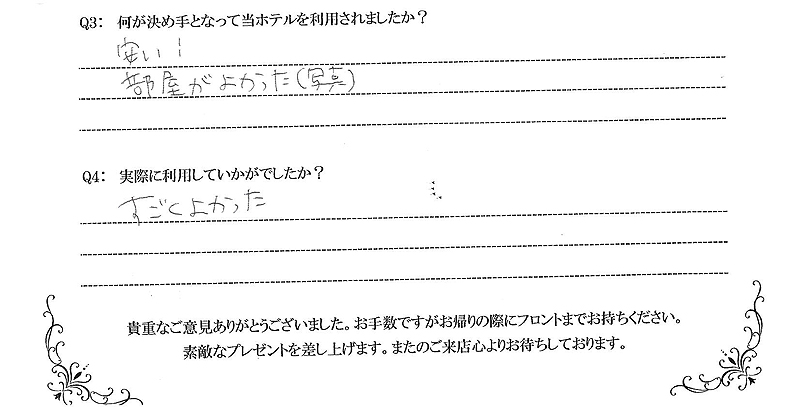 Q3： 何が決め手となって当ホテルを利用されましたか？
安い！
部屋がよかった（写真）
Q4： 実際に利用していかがでしたか？
すごくよかった
貴重なご意見ありがとうございました。お手数ですがお帰りの際にフロントまでお持ちください。
素敵なプレゼントを差し上げます。またのご来店心よりお待ちしております。